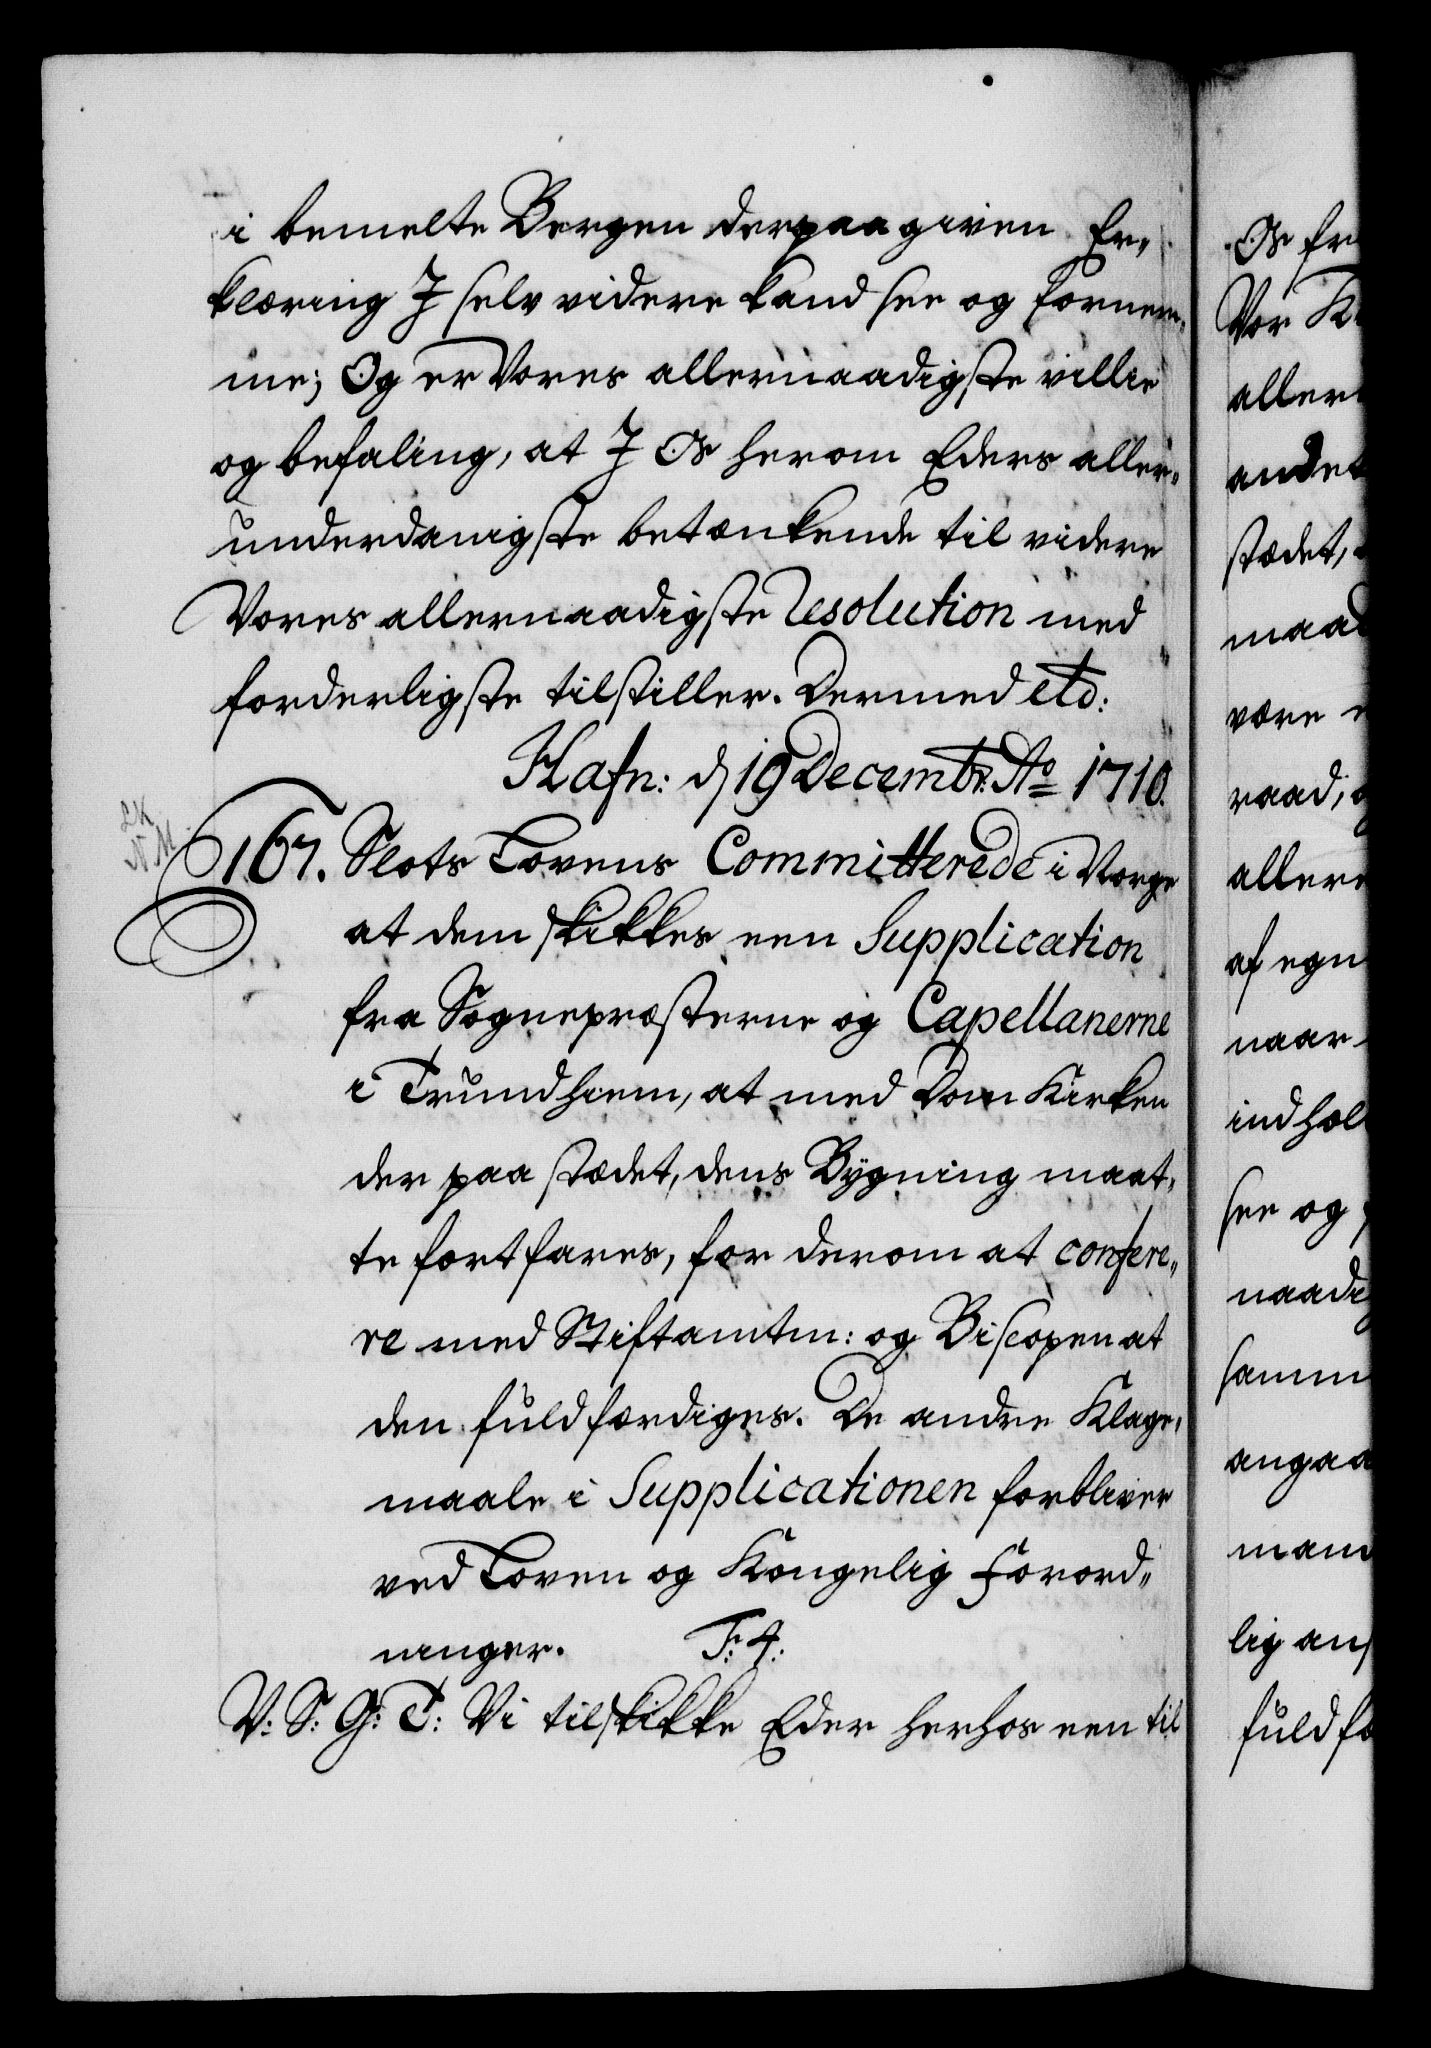 i bemelte Bergen derpaa given Er„
klæring I selv videre kand see og fornem„
me; Og er Vores allernaadigste villie
og befaling, at I Os herom Eders aller„
underdanigste betænkende til videre
Vores allernaadigste Resolution med
forderligste tilstiller. Dermed etc:
Hafn: d 19 Decembr. Ao 1710.
LK
NM
167. Slots Lovens Committerede i Norge
at dem skikkes een Supplication
fra Sognepræsterne og Capellanerne
i Trundhiem, at med Dom Kirken
der paa stædet, dens Bygning maat„
te fortfares, for derom at confere„
re med Stiftamtm: og Biscopen at
den fuldfærdiges. De andre Klage„
maale i Supplicationen forbliver
ved Loven og Kongelig Forord„
ninger. F: 4:
V: S: G: T: Vi tilskikke Eder herhos een til
Os fr
Vor K
aller
andet
stædet,
maa
være
raad,
aller
af egn
naar
indhol
see og
naadi
samm
angaa
mand
lig an
fuldfæ